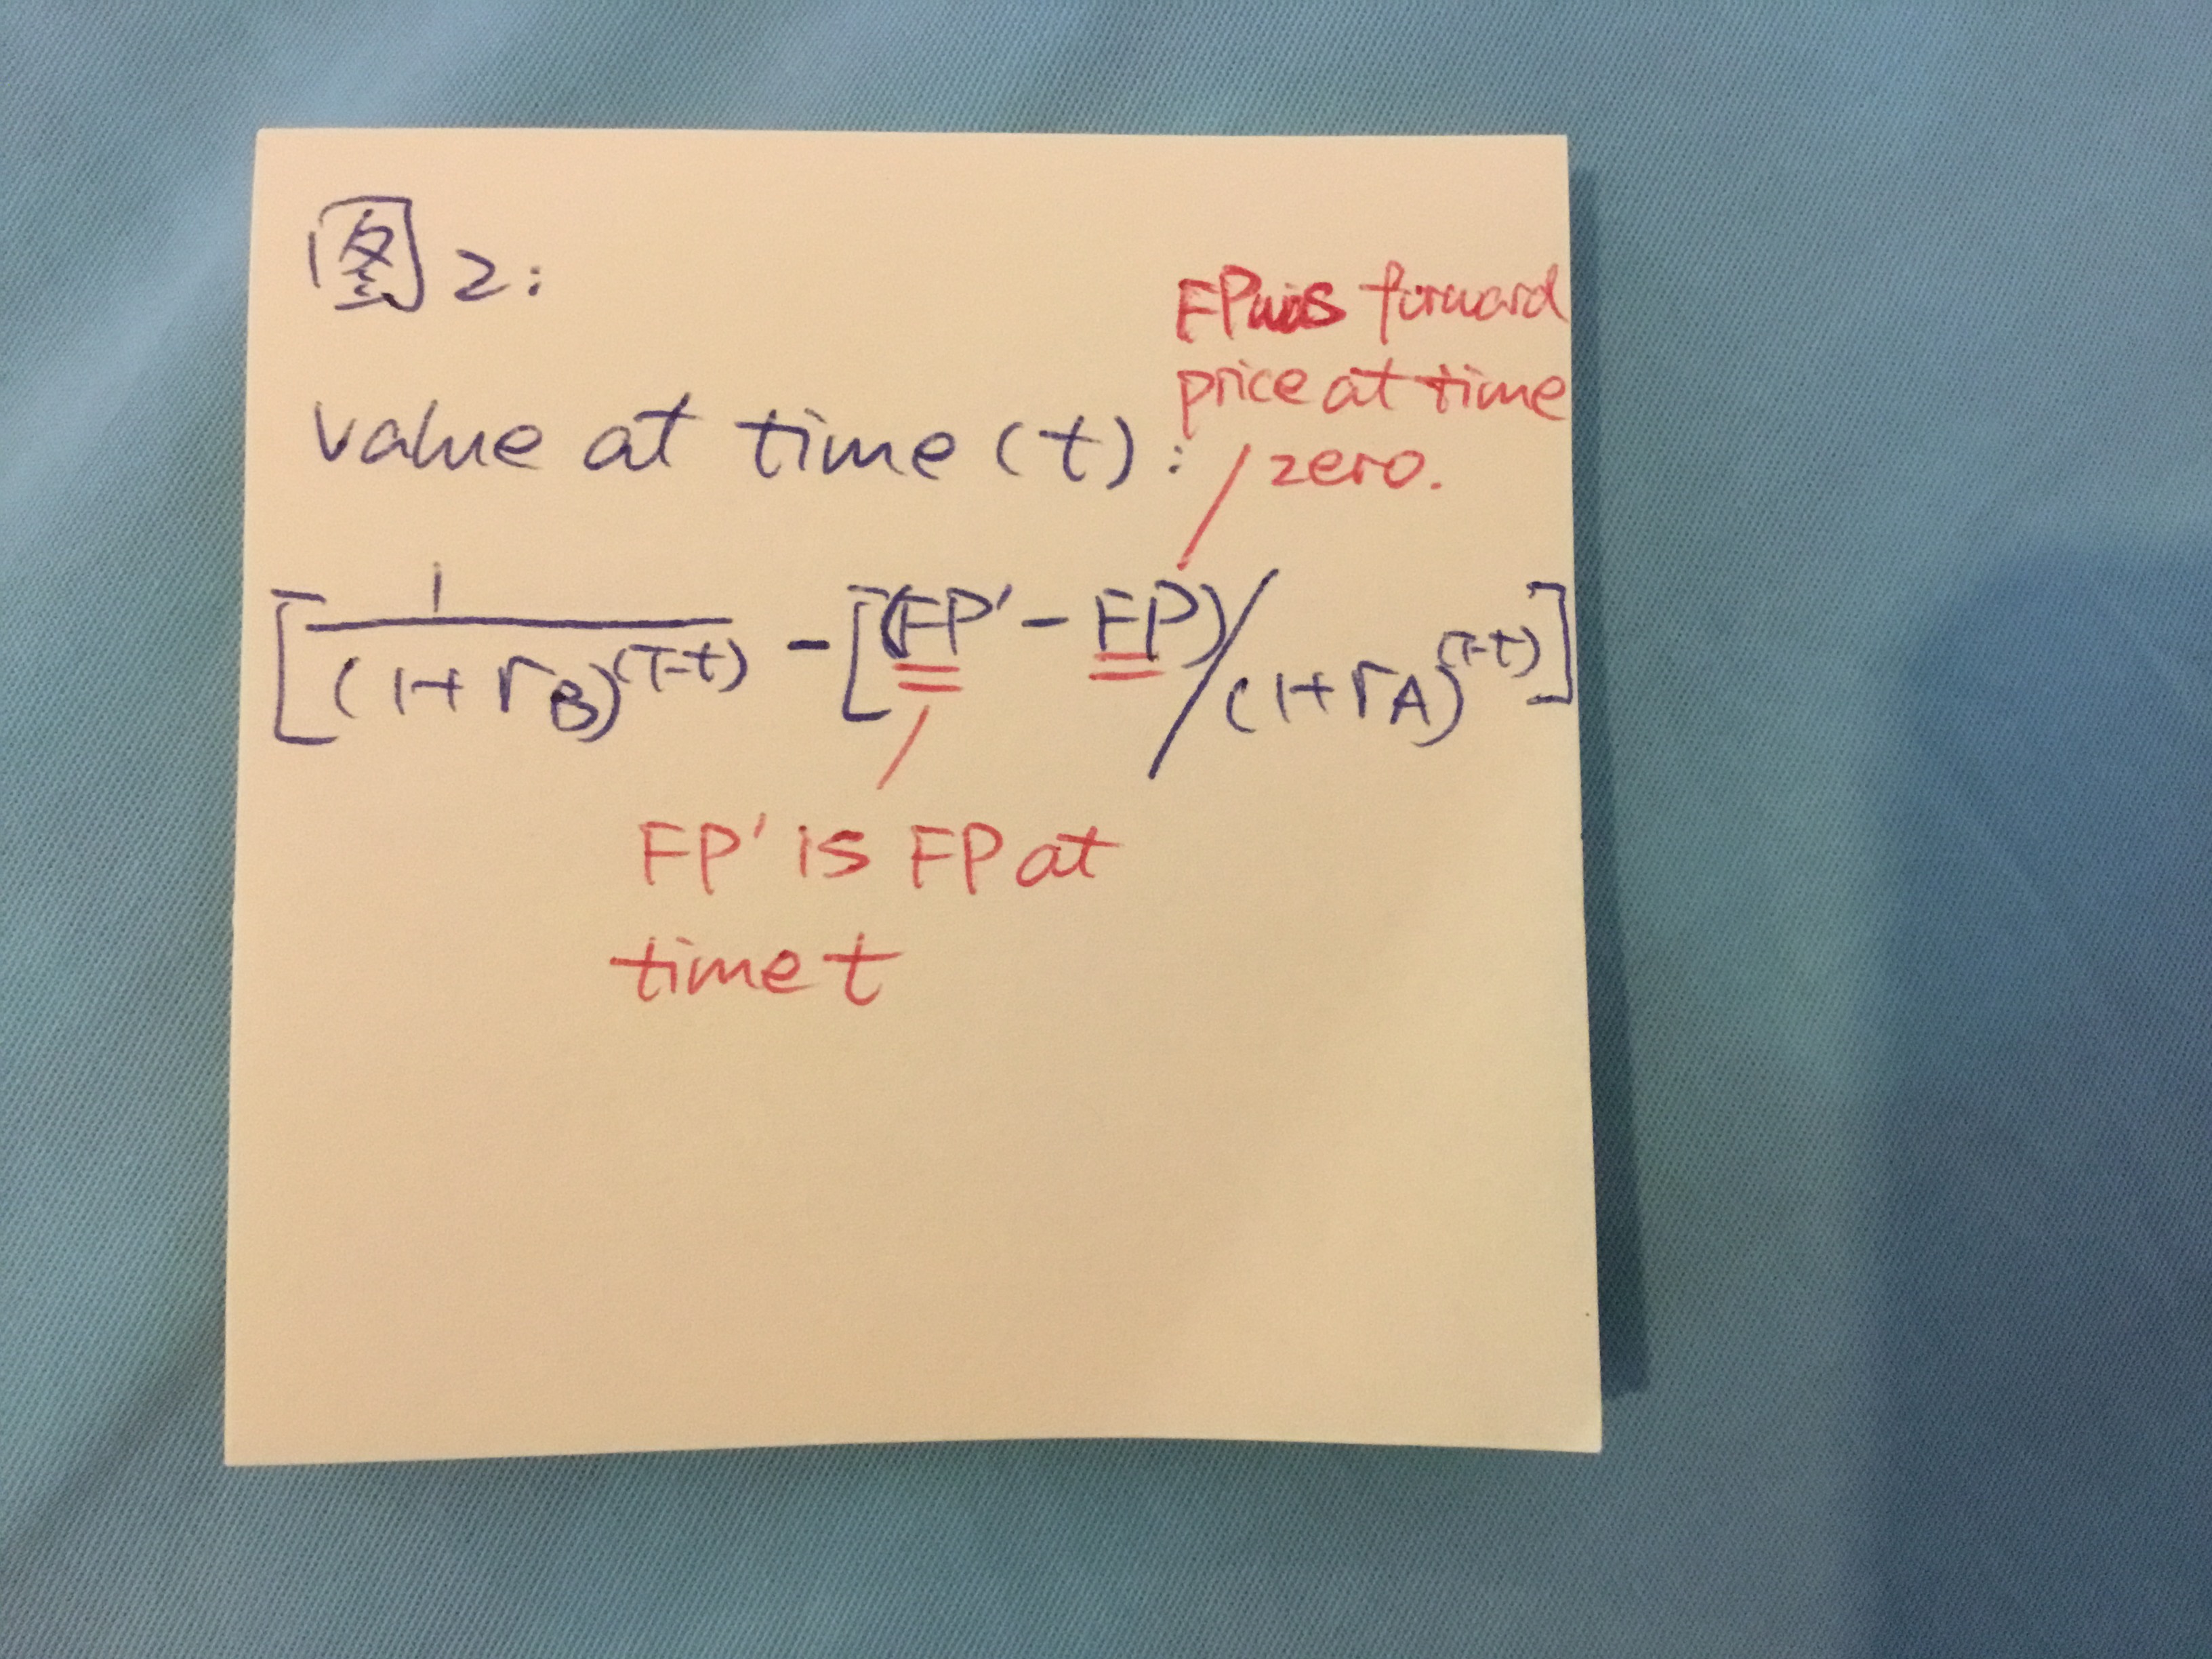 图2:
FP is forward
price at time
zero.
value at time (t):
[1/(1+r_B)^(T-t) - [(FP' - FP)/(1+r_A)^(T-t)]
FP' is FP at
time t